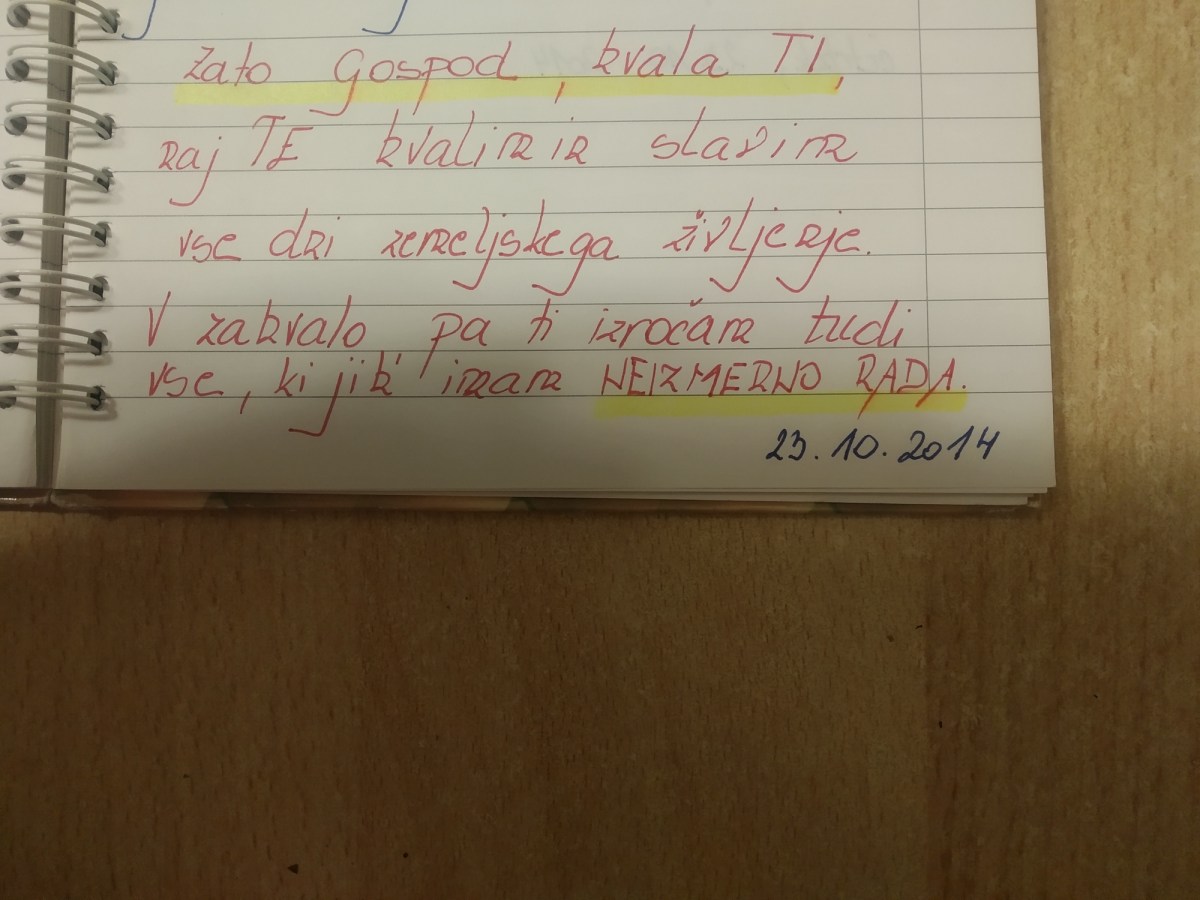 zato Gospod, hvala TI,
naj TE hvalim in slavim
vse dni zemeljskega življenje.
V zahvalo pa ti izročam tudi
vse, ki jih imam NEIZMERNO RADA.
23.10.2014